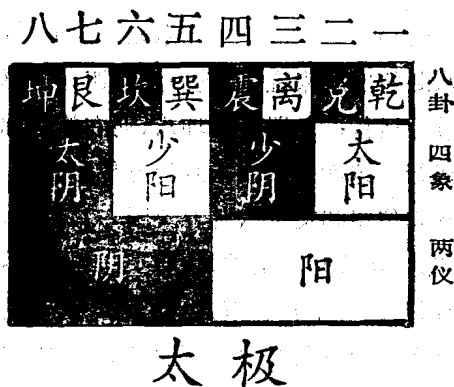 八七六五四三二一
坤艮坎巽震离兑乾 八卦
太阴 少阳 少阴 太阳 四象
阴 阳 两仪
太极